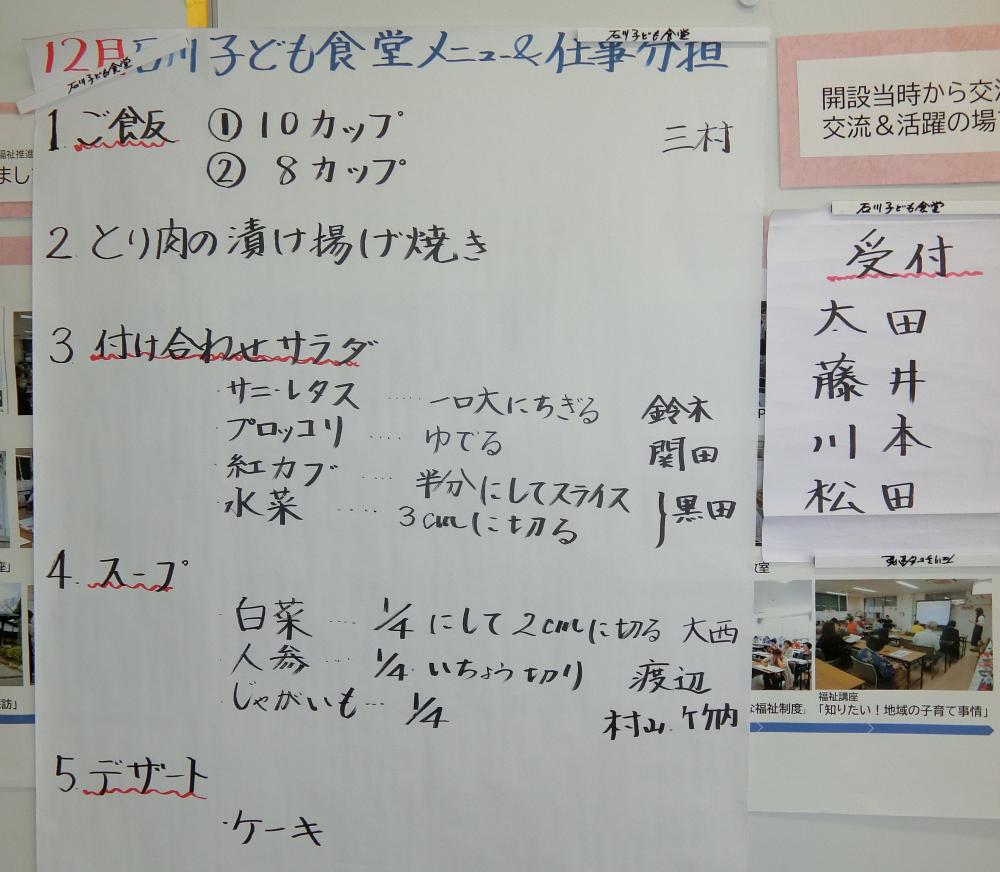 12月石川子ども食堂メニュー&仕事分担
石川子ども食堂
石川子ども食堂
1. ご飯 ① 10カップ 三村
② 8カップ
2. とり肉の漬け揚げ焼き
3. 付け合わせサラダ
・サニーレタス ‥‥ 一口大にちぎる 鈴木
・ブロッコリ ‥‥ ゆでる 関田
・紅カブ ‥‥ 半分にしてスライス
・水菜 ‥‥ 3cmに切る }黒田
4. スープ
・白菜 ‥‥ 1/4にして2cmに切る 大西
・人参 ‥‥ 1/4 いちょう切り 渡辺
・じゃがいも‥ 1/4 村山 竹内
5. デザート
・ケーキ
石川子ども食堂
受付
太田
藤井
川本
松田
石川子ども食堂
開設当時から交
交流&活躍の場
福祉推進
まし
座」
訪」
教室
な福祉制度」
福祉講座
「知りたい!地域の子育て事情」